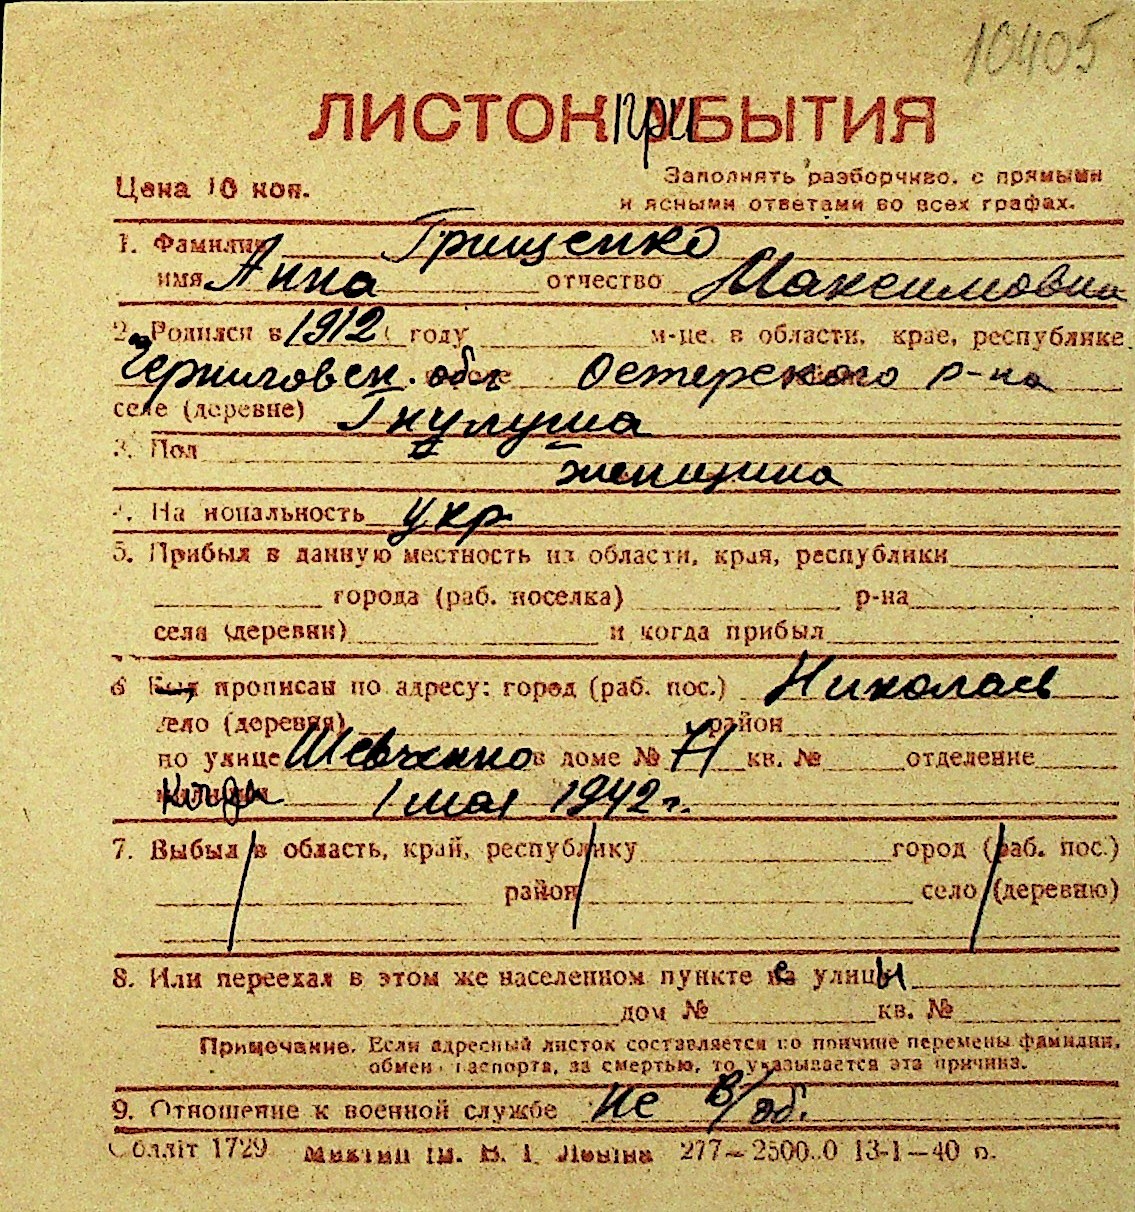 10405
ЛИСТОК ПРИБЫТИЯ
Цена 10 коп.
Заполнять разборчиво, с прямыми
и ясными ответами во всех графах.
1. Фамилия Грищенко
имя Анна отчество Максимовна
2. Родился в 1912 году м-це, в области, крае, республике
Черниговск. обл Остерского р-на
селе (деревне)
3. Пол
женщина
4. Национальность укр
5. Прибыл в данную местность из области, края, республики
города (раб. поселка) р-на
села (деревни) и когда прибыл
6 прописан по адресу: город (раб. пос.) Николаев
село (деревня) район
по улице Шевченко в доме № 71 кв. № отделение
Когда 1 мая 1942 г.
7. Выбыл в область, край, республику город (раб. пос.)
район село (деревню)
8. Или переехал в этом же населенном пункте с улицы
дом № кв. №
Примечание. Если адресный листок составляется по причине перемены фамилии,
обмен паспорта, за смертью, то указывается эта причина.
9. Отношение к военной службе не в/об.
Облліт 1729 Миктип ім. В. І. Леніна 277—2500.0 13-1—40 р.